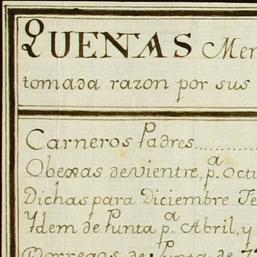 QUENTAS Men
tomada razon por sus
Carneros Padres..........
Obexas de vientre, p.ª Octu
Dichas para Diciembre Fe
Ydem de Punta p.ª Abril, y
Borregos de Punta de